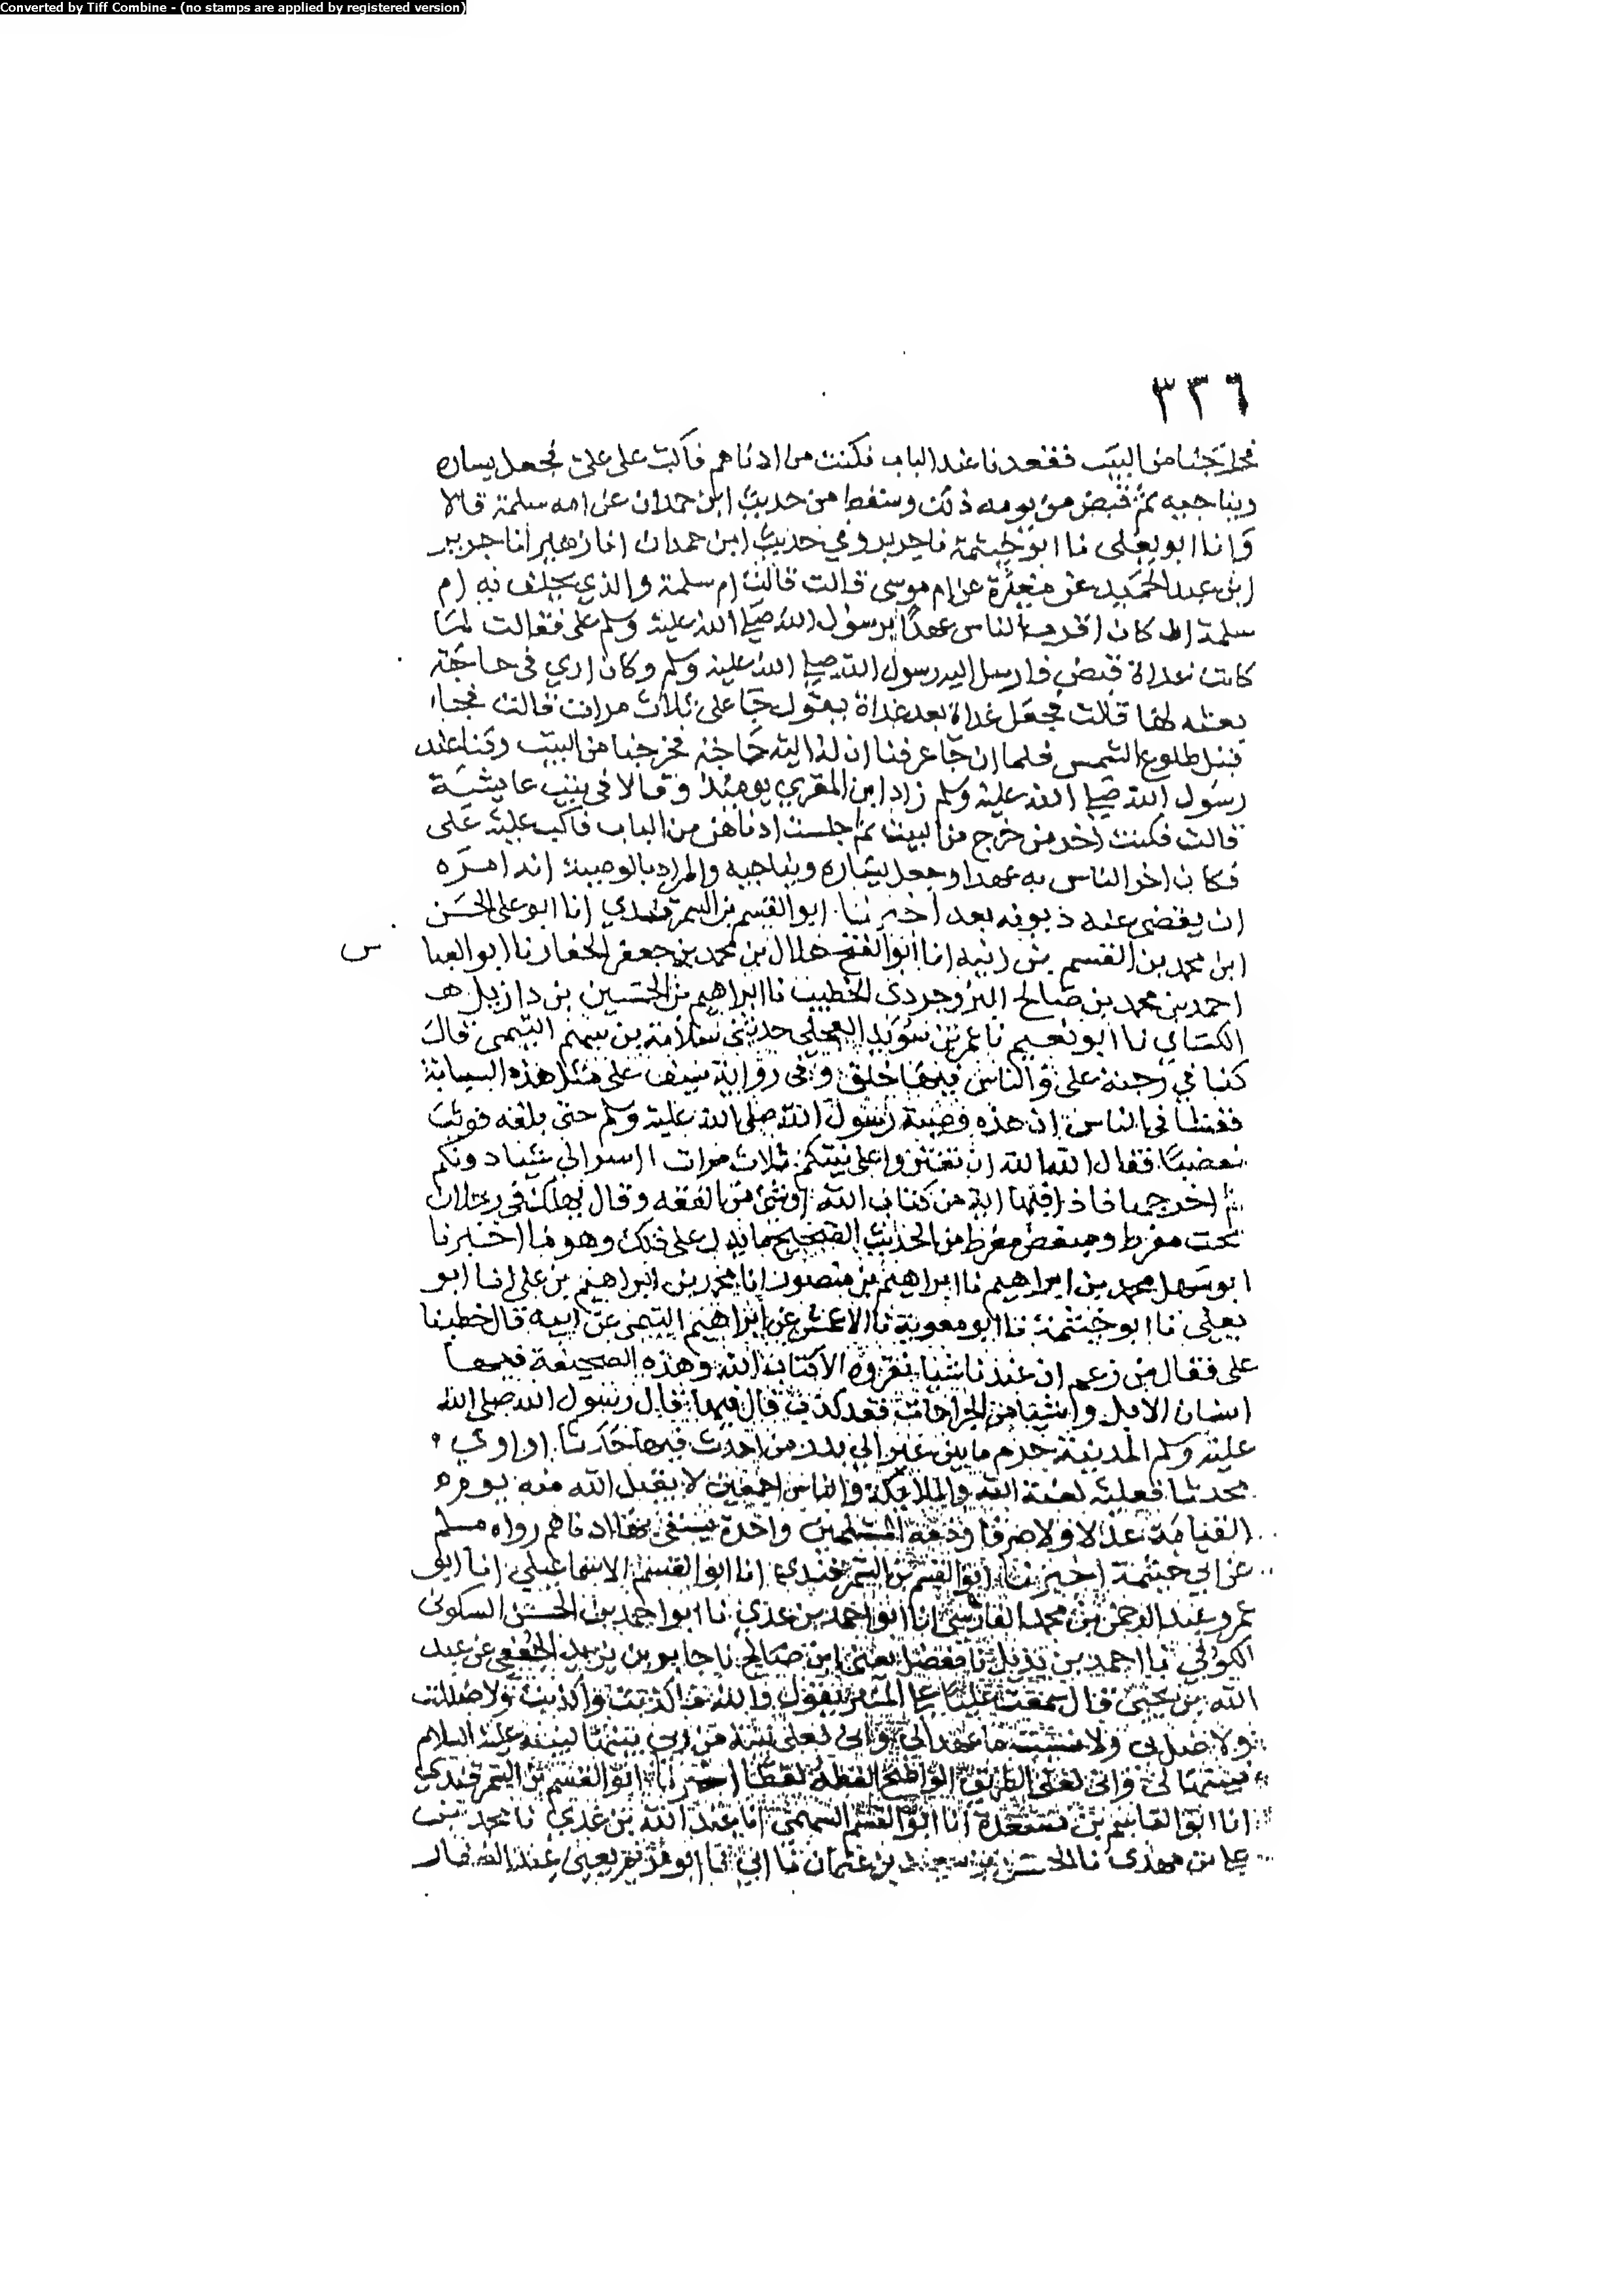 Converted by Tiff Combine - (no stamps are applied by registered version)
٣٣٦
فخرجنا من البيت فقعدنا عند الباب فكنت من ادناهم فاكب على علي فجعل يساره
ويناجيه ثم قبض من يومه ذلك وسقط من حديث ابن حمدان عن ام سلمة قالا
وانا ابو يعلى نا ابو خيثمة نا جرير وفي حديث ابن حمدان انا زهير انا جرير
ابن عبد الحميد عن مغيرة عن ام موسى قالت قالت ام سلمة والذي يحلف به ام
سلمة ان كان اقرب الناس عهدا برسول الله صلى الله عليه وسلم علي فقالت لما
كانت غداة قبض فارسل اليه رسول الله صلى الله عليه وسلم وكان اري في حاجة
بعثه لها قالت فجعل غداة بعد غداة يقول جا علي ثلاث مرات قالت فجاا
قبل طلوع الشمس فلما ان جا عرفنا ان له اليه حاجة فخرجنا من البيت وكنا عند
رسول الله صلى الله عليه وسلم زاد ابن المقري يومئذ وقالا في بيت عايشة
قالت فكنت اخر من خرج من البيت ثم جلست ادناهن من الباب فاكب عليه على
فكان اخر الناس به عهدا وجعل يساره ويناجيه والمراد بالوصية انه امره
ان يقضي عنه ديونه بعد اخبرنا ابو القسم بن السمرقندي انا ابو على الحسن
ابن محمد بن القسم بن زنيه انا ابو الفتح هلال بن محمد بن جعفر الحفار نا ابو العبا
س
احمد بن محمد بن صالح البروجردي الخطيب نا ابراهيم بن الحسين بن دازيل هـ
الكسائي نا ابو نعيم نا عمر بن سويد العجلي حدثني سلامة بن سهم التيمي قال
كنا في رحبة علي والناس فيها خلق وفي رواية سيف على مثل هذه السبابة
ففشا في الناس ان هذه وصية رسول الله صلى الله عليه وسلم حتى بلغه فوثب
مغضبا فقال الله الله ان تفتنوا على نبيكم ثلاث مرات ااسر الي شيا دونكم
ثم اخرجها فاذا فيها اية من كتاب الله او شئ من الفقه وقال يهلك في رجلان
محب مفرط ومبغض مفرط من الحديث الصحيح ما يدل على ذلك وهو ما اخبرنا
ابو سهل محمد بن ابراهيم نا ابراهيم بن منصور انا محمد بن ابراهيم بن علي انا ابو
يعلى نا ابو خيثمة نا ابو معوية نا الاعمش عن ابراهيم التيمي عن ابيه قال خطبنا
علي فقال من زعم ان عندنا شيا نقروه الا كتاب الله وهذه الصحيفة فيها
اسنان الابل واشيا من الجراحات فقد كذب قال فيها قال رسول الله صلى الله
عليه وسلم المدينة حرم ما بين عير الي من احدث فيها حدثا او اوي
محدثا فعليه لعنة الله والملايكة والناس اجمعين لا يقبل الله منه يوم
القيامة عدلا ولا صرفا وذمة المسلمين واحدة يسعى بها ادناهم رواه مسلم
عن ابي خيثمة اخبرنا ابو القسم بن السمرقندي انا ابو القسم الاسماعيلي انا ابو
عمرو عبد الرحمن بن محمد الفارسي انا ابو احمد بن عدي نا ابو احمد بن الحسين السكوني
الكوفي نا احمد بن بديل نا مفضل يعني ابن صالح نا جابر بن يزيد الجعفي عن عبد
الله بن يحيى قال سمعت عليا على المنبر يقول والله ما كذبت ولا كذبت ولا ضللت
ولا ضل بي ولا نسيت ما عهد الي واني لعلى بينة من ربي بينها لنبيه عليه السلام
فبينها لي واني لعلى الطريق الواضح القطه لقطا اخبرنا ابو القسم بن السمرقندي
انا ابو القاسم بن مسعدة انا ابو القسم السهمي انا عبد الله بن عدي نا محمد بن
علي بن مهدي نا الحسن بن سعيد بن عثمان نا ابي نا ابو مريم يعني عبد الغفار